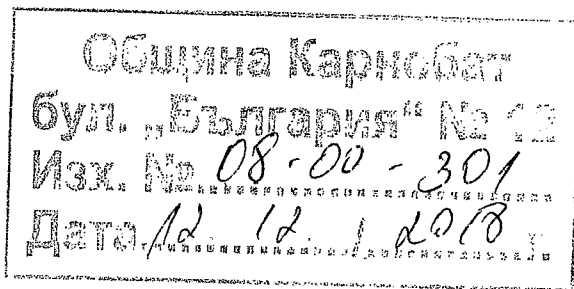 Община Карнобат
бул. „България“ № 12
Изх. № 08-00-301
Дата 12.12./2018 г.